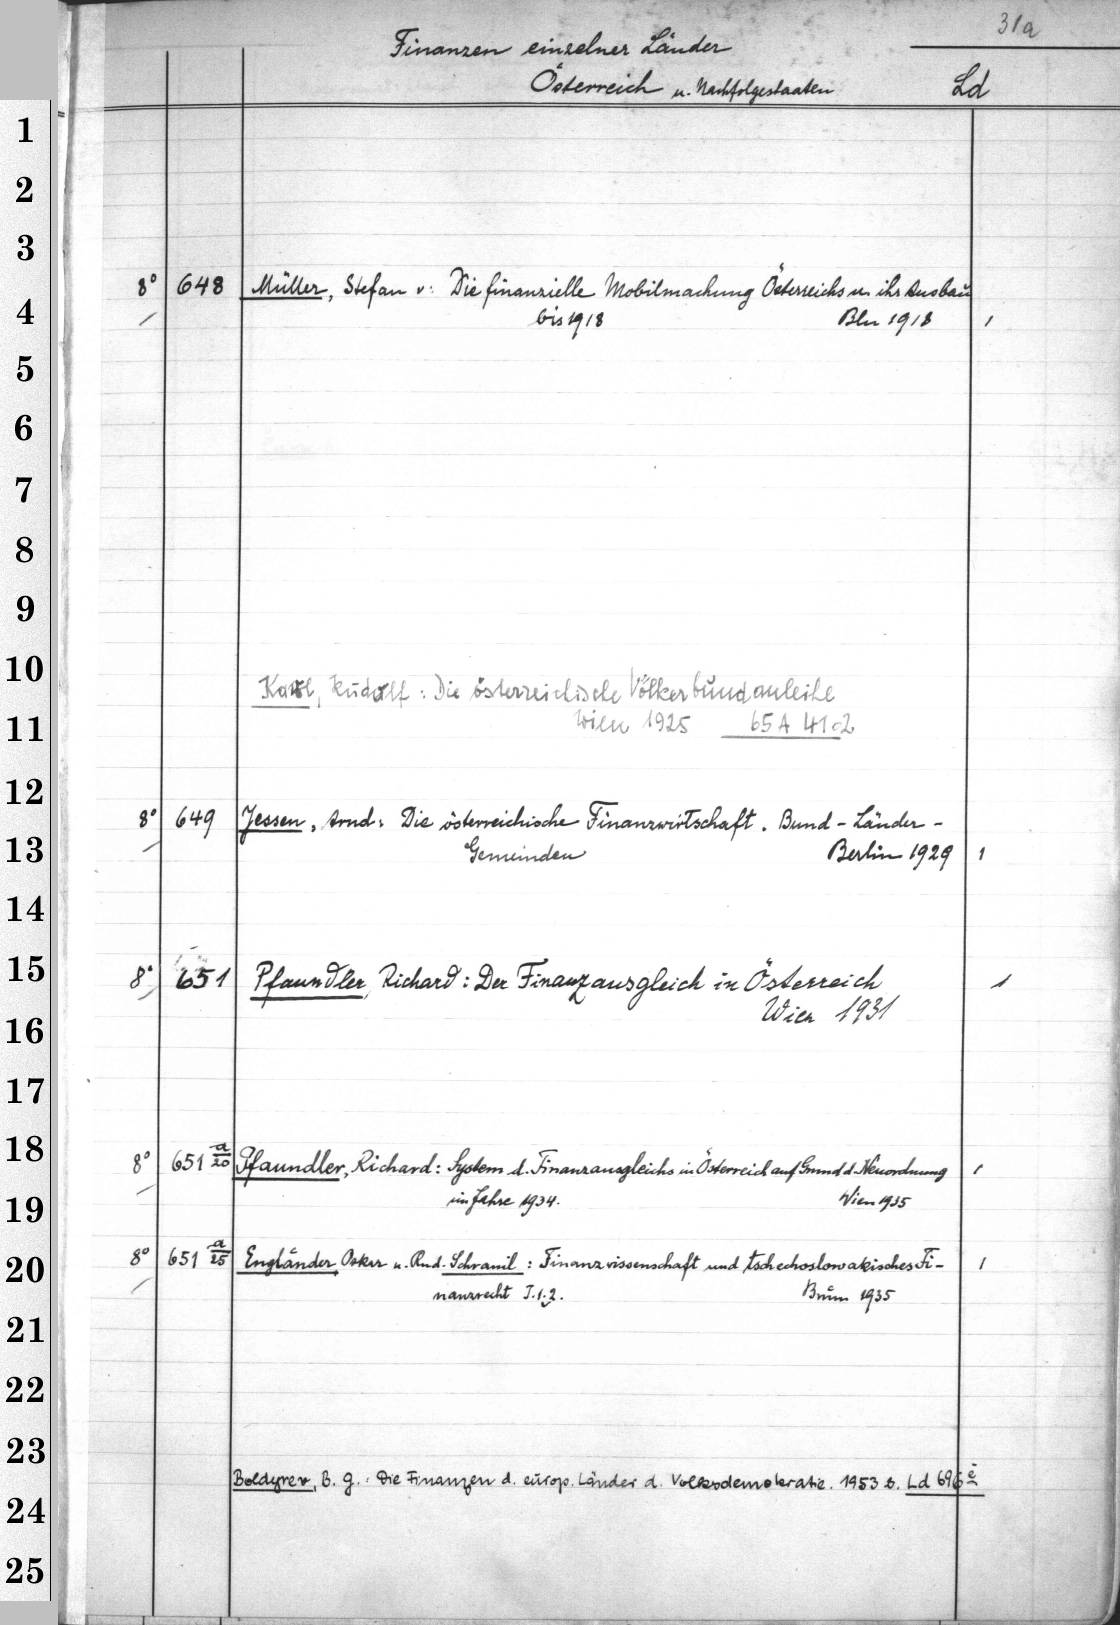 31a
Finanzen einzelner Länder
Österreich u. Nachfolgestaaten Ld
1
2
3
8° 648 Müller, Stefan v: Die finanzielle Mobilmachung Österreichs u. ihr Ausbau
4 bis 1918 Bln 1918 1
5
6
7
8
9
10
Karl, Rudolf: Die österreichische Völkerbundanleihe
11 Wien 1925 65 A 4102
12
8° 649 Jessen, Arnd: Die österreichische Finanzwirtschaft. Bund - Länder -
13 Gemeinden Berlin 1929 1
14
15 8° 651 Pfaundler, Richard: Der Finanzausgleich in Österreich 1
16 Wien 1931
17
18 8° 651 a/20 Pfaundler, Richard: System d. Finanzausgleichs in Österreich auf Grund d. Neuordnung 1
19 im Jahre 1934. Wien 1935
20 8° 651 a/25 Engländer, Oskar u. Rud. Schranil: Finanzwissenschaft und tschechoslowakisches Fi- 1
nanzrecht T. 1.2. Brünn 1935
21
22
23
Boldyrev, B. G.: Die Finanzen d. europ. Länder d. Volksdemokratie. 1953 s. Ld 696 e
24
25